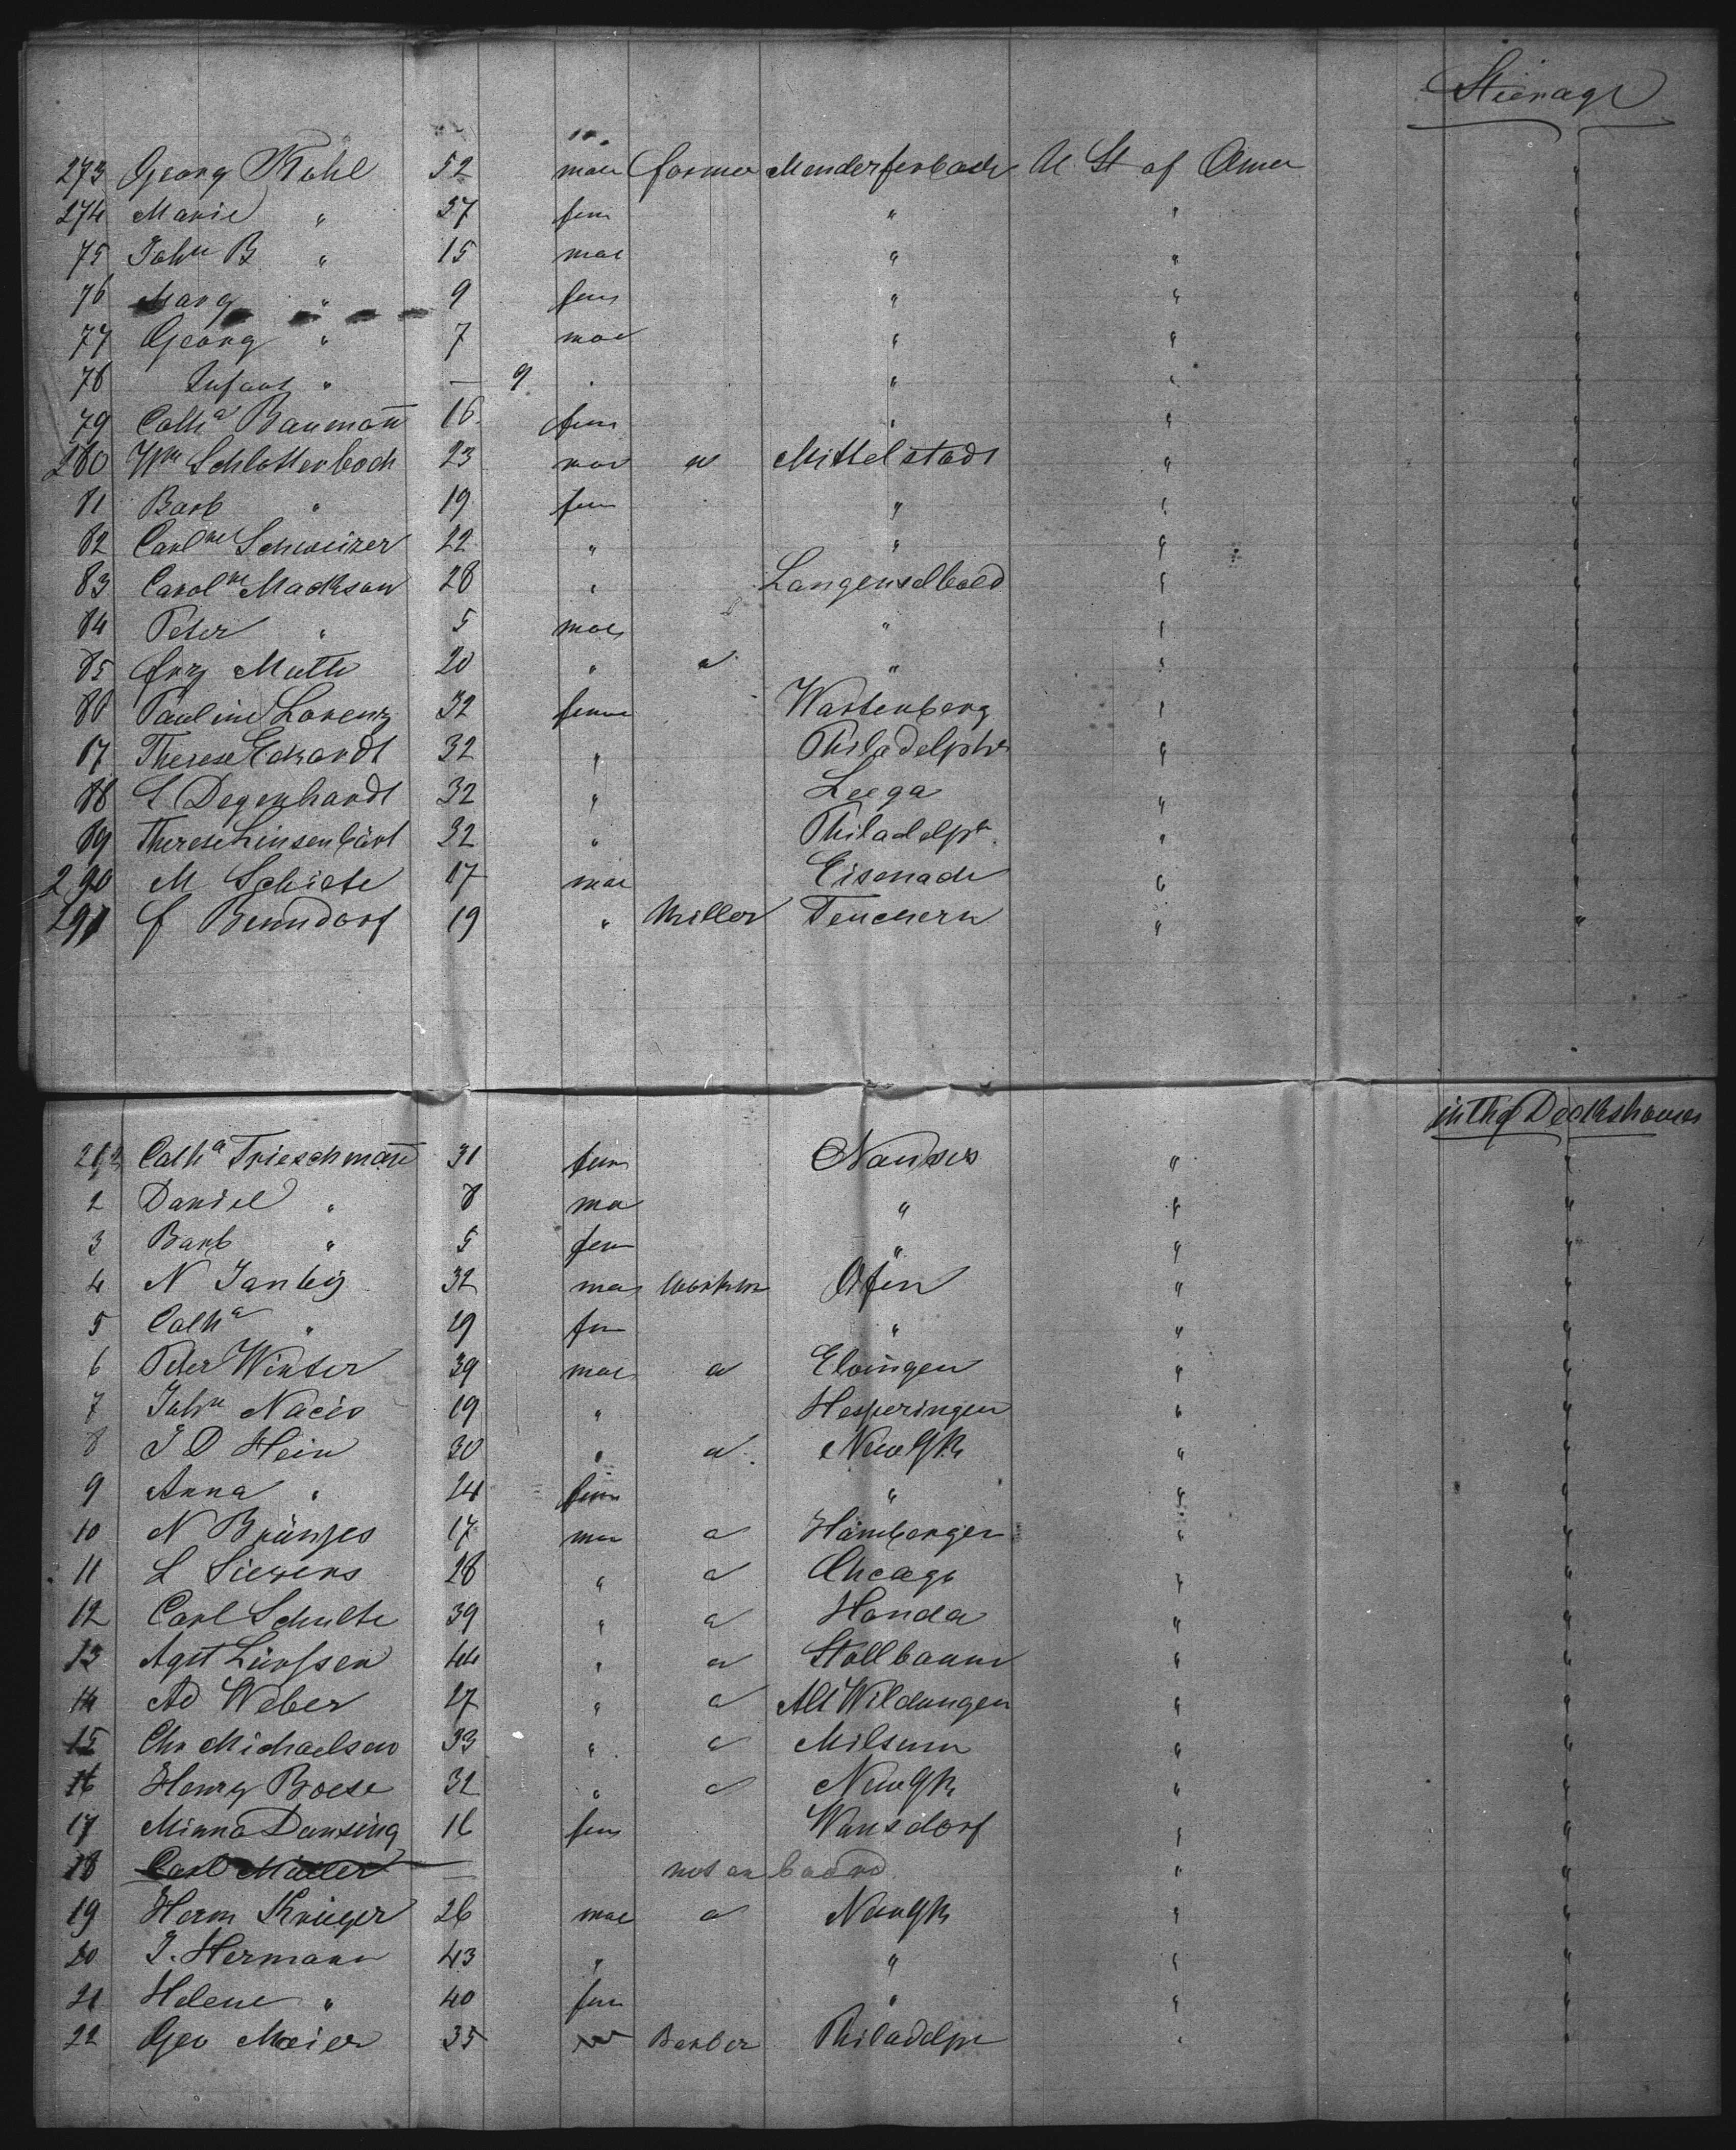 Steerage
273 Georg Kohl 52 male farmer Menderferbach U St of Amer "
274 Marie " 37 fem " " "
75 Johⁿ B " 15 mal " " "
76 Marg " 9 fem " " "
77 Georg " 7 mal " " "
78 Infant " — 9 " " "
79 Cathᵃ Baumañ 16 fem " " "
280 Wᵐ Schlotterbach 23 mal a Mittelstadt " "
81 Barb " 19 fem " " "
82 Carlⁿᵉ Schweizer 22 " " " "
83 Carolⁿᵉ Mackson 28 " Langenselbold " "
84 Peter " 5 mal " " "
85 Frz Muth 20 " a " " "
86 Pauline Lorenz 32 fem Wartenberg " "
87 Therese Eckardt 32 " Philadelphia " "
88 E Degenhardt 32 " Leega " "
89 Therese Linsenbart 32 " Philadelpʰ " "
290 M Schiete 17 mal Eisenach " "
291 F Benndorf 19 " Miller Teuchern " "
in the Deckshouses
292 Cathᵃ Trieschmañ 31 fem Nauses " "
2 Daniel " 8 ma " " "
3 Barb " 5 fem " " "
4 N 32 mal workm Ofen " "
5 Cathᵃ " 29 fem " " "
6 Peter Winter 39 mal a Elvingen " "
7 Johⁿ Nacis 19 " Hesperingen " "
8 J D Hein 30 " a New Yk " "
9 Anna " 24 fem " " "
10 N Brünjes 17 mal a Hambergen " "
11 L Sievers 28 " a Chcago " "
12 Carl Schulte 39 " a Honda " "
13 Agst Lürssen 44 " a Stollbaum " "
14 Ad Weber 27 " a Alt Wildungen " "
15 Chr Michaelsen 33 " a Milsum " "
16 Henry Boese 32 " a New Yk " "
17 Minna Dansing 16 fem Wansdorf " "
18 Carl Müller — not on board " "
19 Herm Krüger 26 mal a New Yk " "
20 J. Hermann 43 " " " "
21 Helene " 40 fem " " "
22 Geo Meier 35 m Barber Philadelp " "